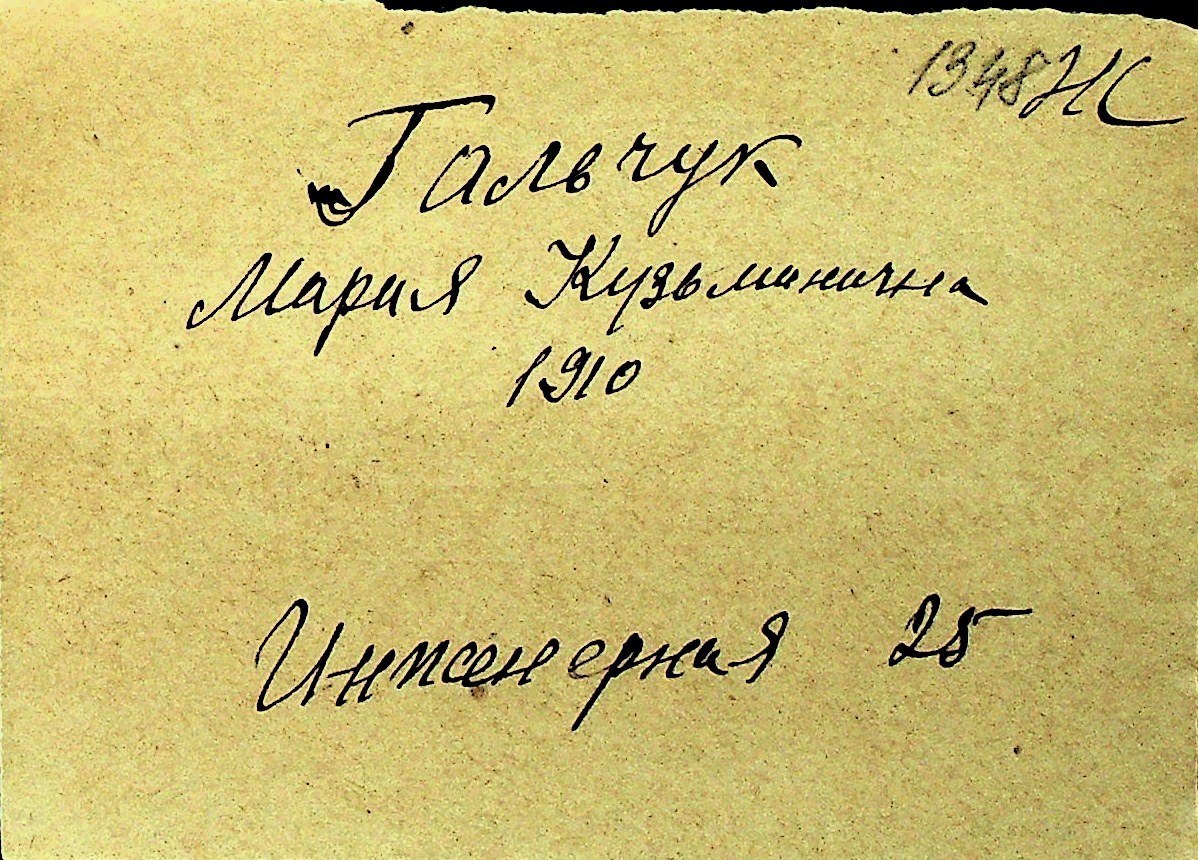 1348 Ж
Гальчук
Мария Кузьминична
1910
Инженерная 25